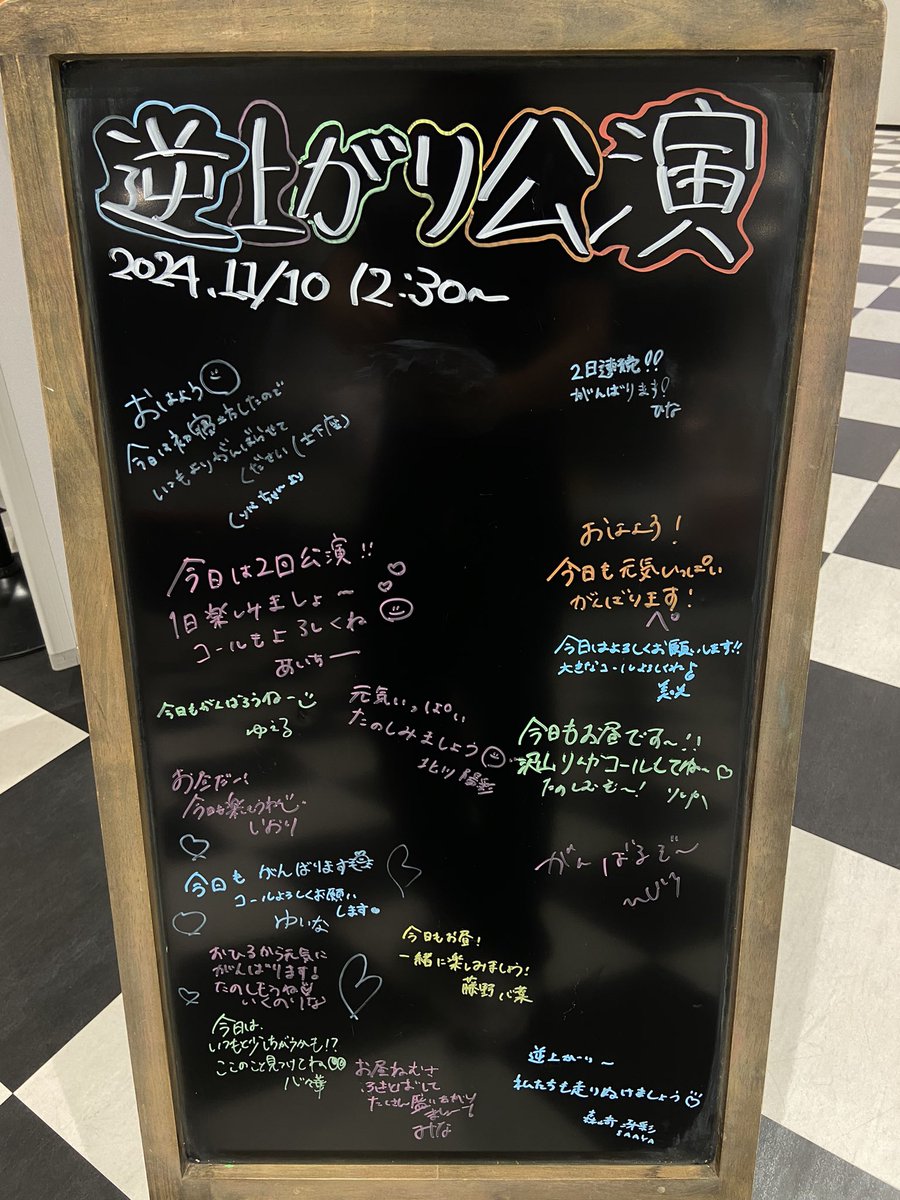 逆上がり公演
2024.11/10 12:30~
おはよう
今日は初寝坊したので
いつもよりがんばらせて
ください(土下座)
2日連続!!
がんばります!
ひな
おはよう!
今日も元気いっぱい
がんばります!
今日は2回公演!!
1日楽しみましょ〜
コールもよろしくね
あいちー
今日はよろしくお願いします!!
大きなコールよろしくね♪
今日もがんばろうねー
ゆぇる
元気いっぱい
たのしみましょう
北川陽彩
今日もお昼です〜!!
沢山りんかコールしてね〜♡
たのしむぞ〜!
今日も楽しもうねー
いおり
がんばるぞ〜
今日もがんばります
コールよろしくお願い
します
ゆいな
今日もお昼!
一緒に楽しみましょう!
藤野心菜
おひるから元気に
がんばります!
たのしもうね
いくのりな
今日は、
いつもと少しちがうかも!?
ここのこと見つけてね
お昼ねむさ
ふきとばして
みな
逆上がり〜
私たちも走りぬけましょう
SAAYA